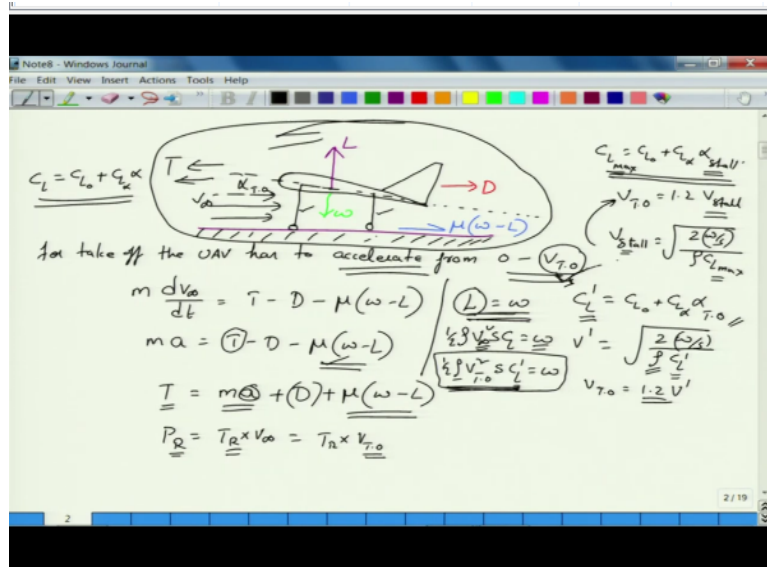 Note8 - Windows Journal
File Edit View Insert Actions Tools Help
C_L = C_L₀ + C_Lα α
T
α_T.O
V∞
L
ω
D
μ(ω-L)
C_L max = C_L₀ + C_Lα α_stall
V_T.O = 1.2 V_stall
V_stall = √(2(ω/s) / ρ C_L max)
for take off the UAV has to accelerate from 0 - V_T.O
m dV∞/dt = T - D - μ(ω-L)
ma = T - D - μ(ω-L)
T = ma + (D) + μ(ω-L)
P_R = T_R × V∞ = T_R × V_T.O
L = ω
½ρV∞² S C_L = ω
½ρV²_T.O S C_L' = ω
C_L' = C_L₀ + C_Lα α_T.O
V' = √(2(ω/s) / ρ C_L')
V_T.O = 1.2 V'
2 / 19
2